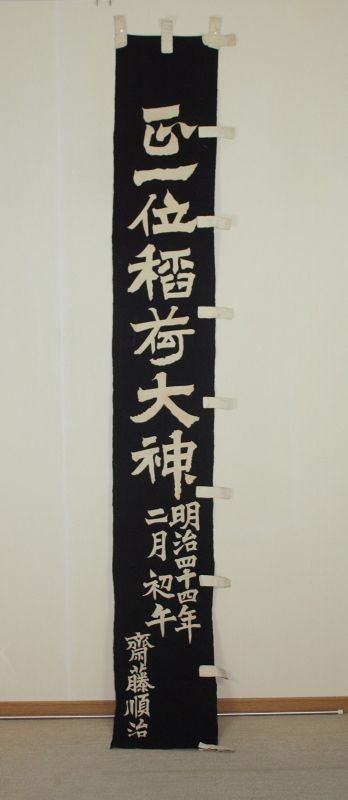 正一位稻荷大神
明治四十四年
二月初午
齋藤順治